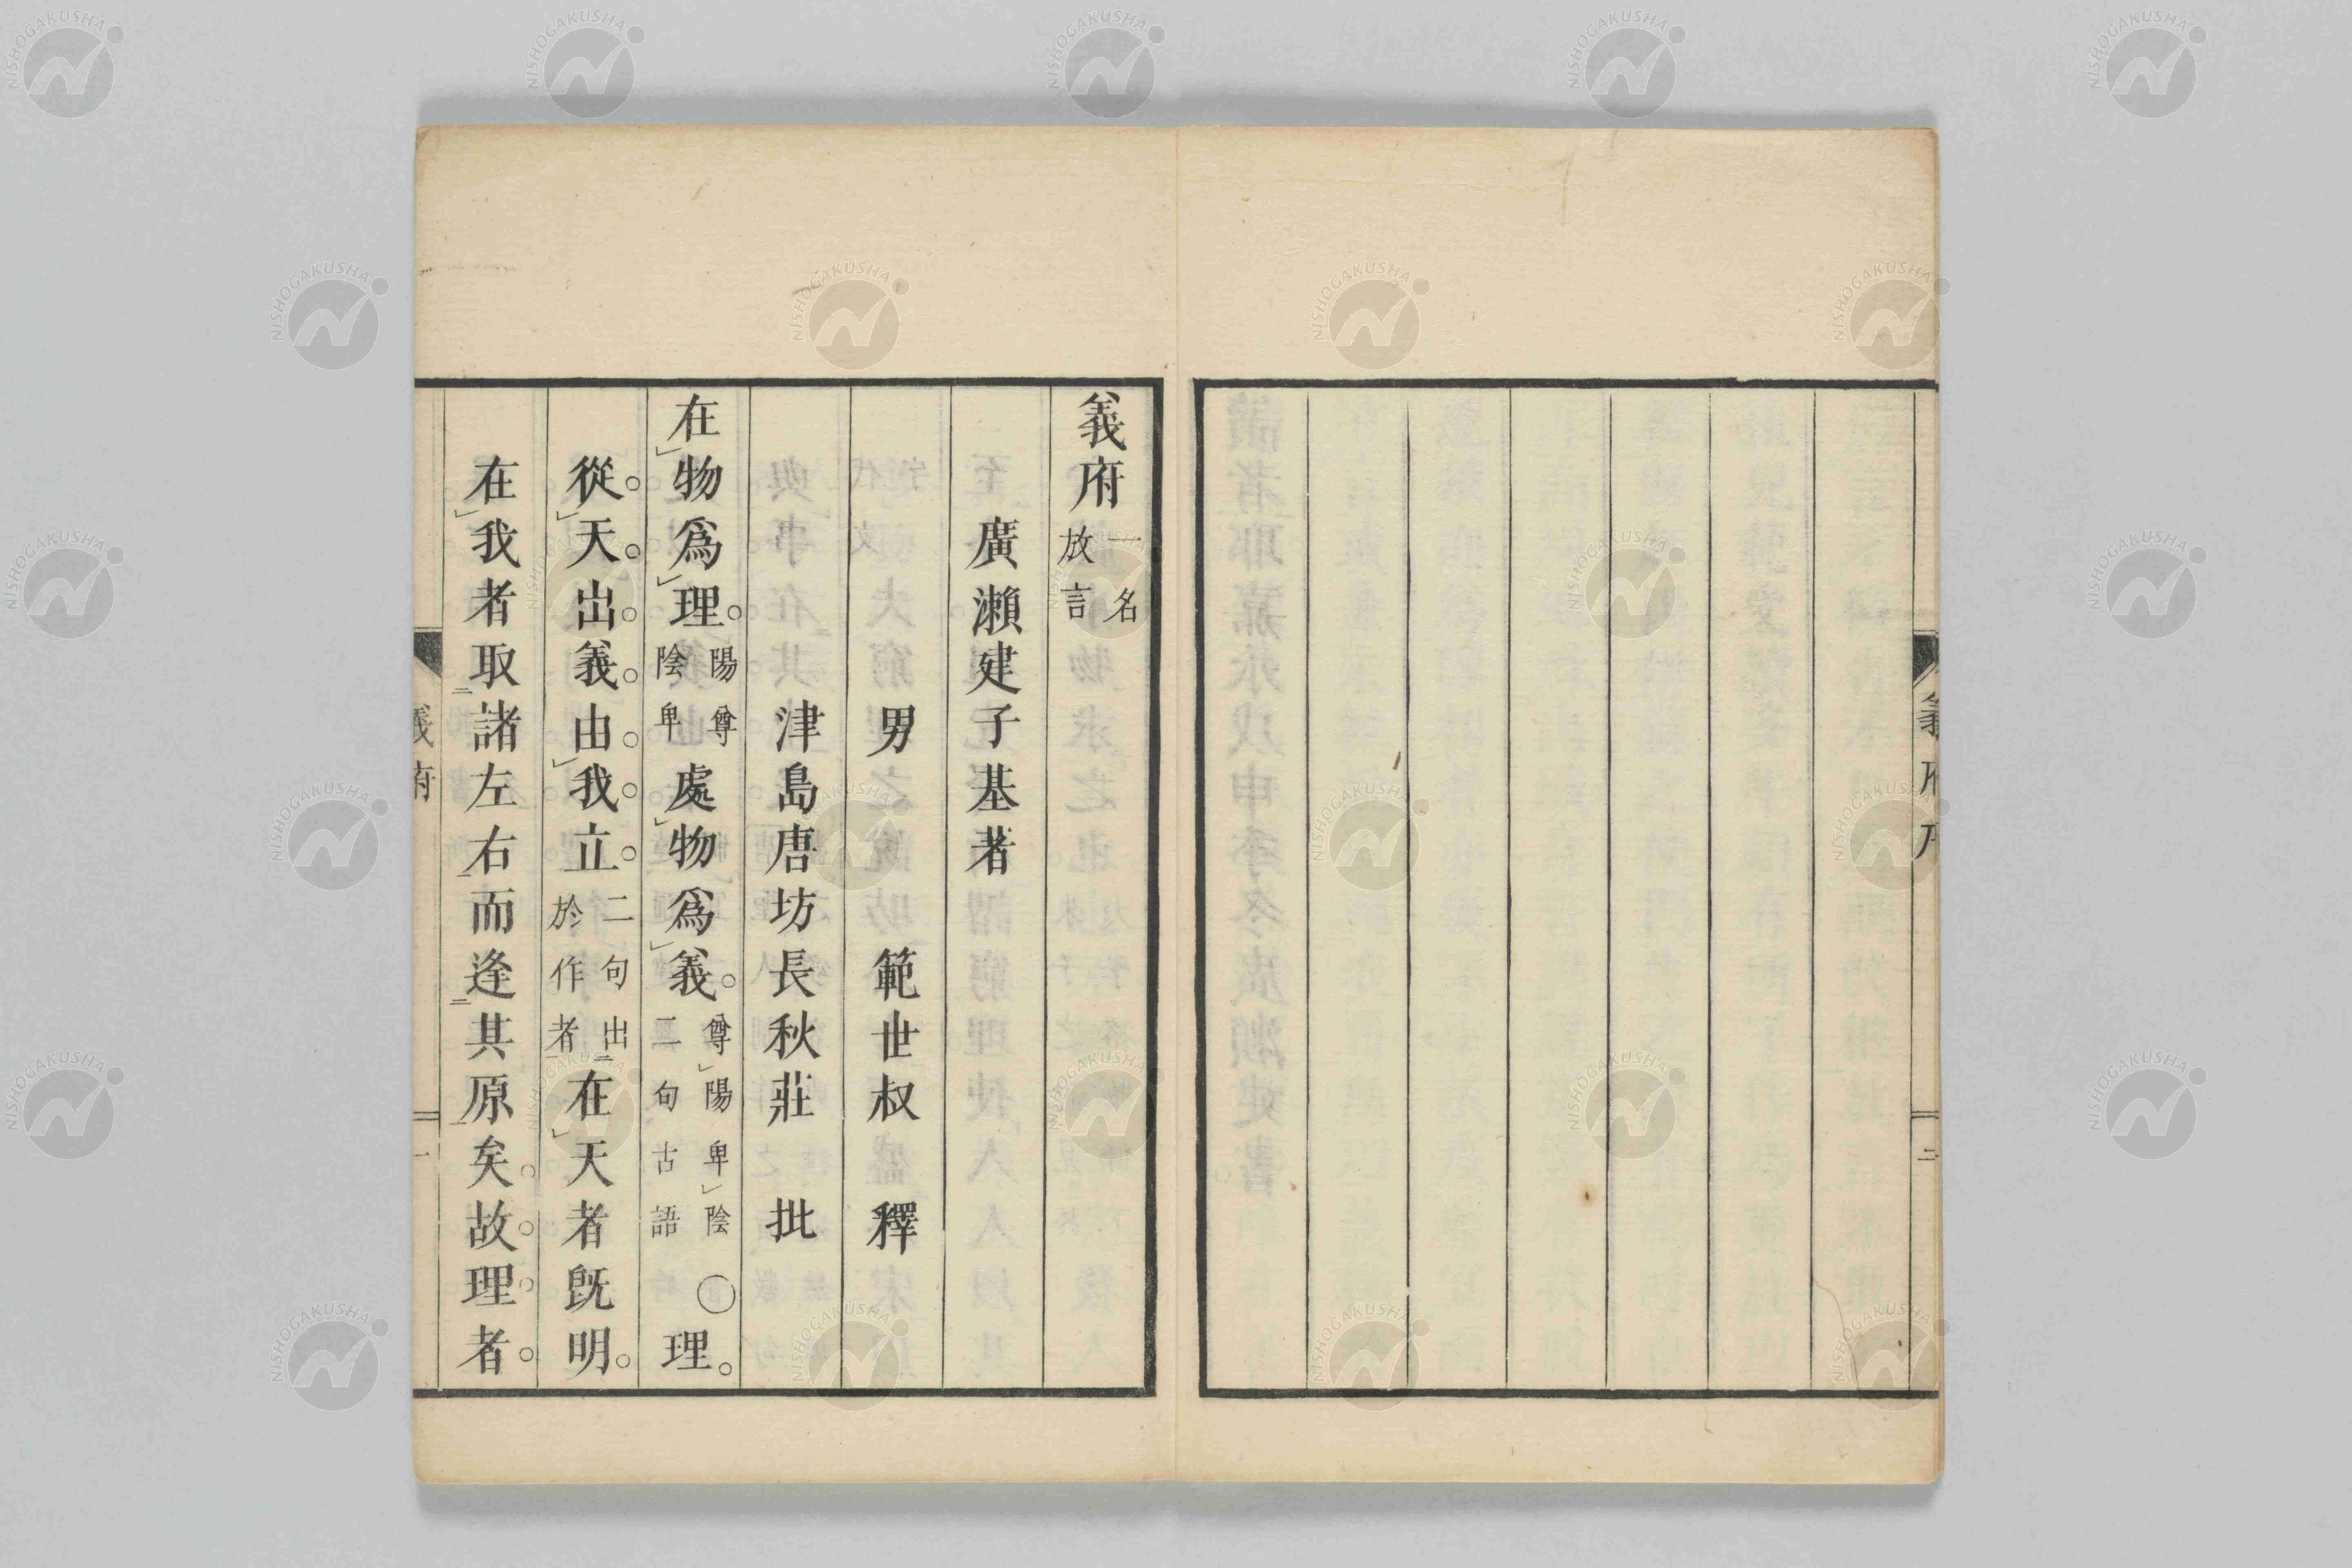 義府序
二
義府 一名放言
廣瀨建子基著
男 範世叔 釋
津島唐坊長秋莊 批
在物爲理。陽尊陰卑處物爲義。尊陽卑陰二句古語 〇理。
從。天。出。義。由。我。立。二句出於作者在天者既明。
在我者取諸左右而逢其原矣。故。理。者。
義府
一
NISHOGAKUSHA